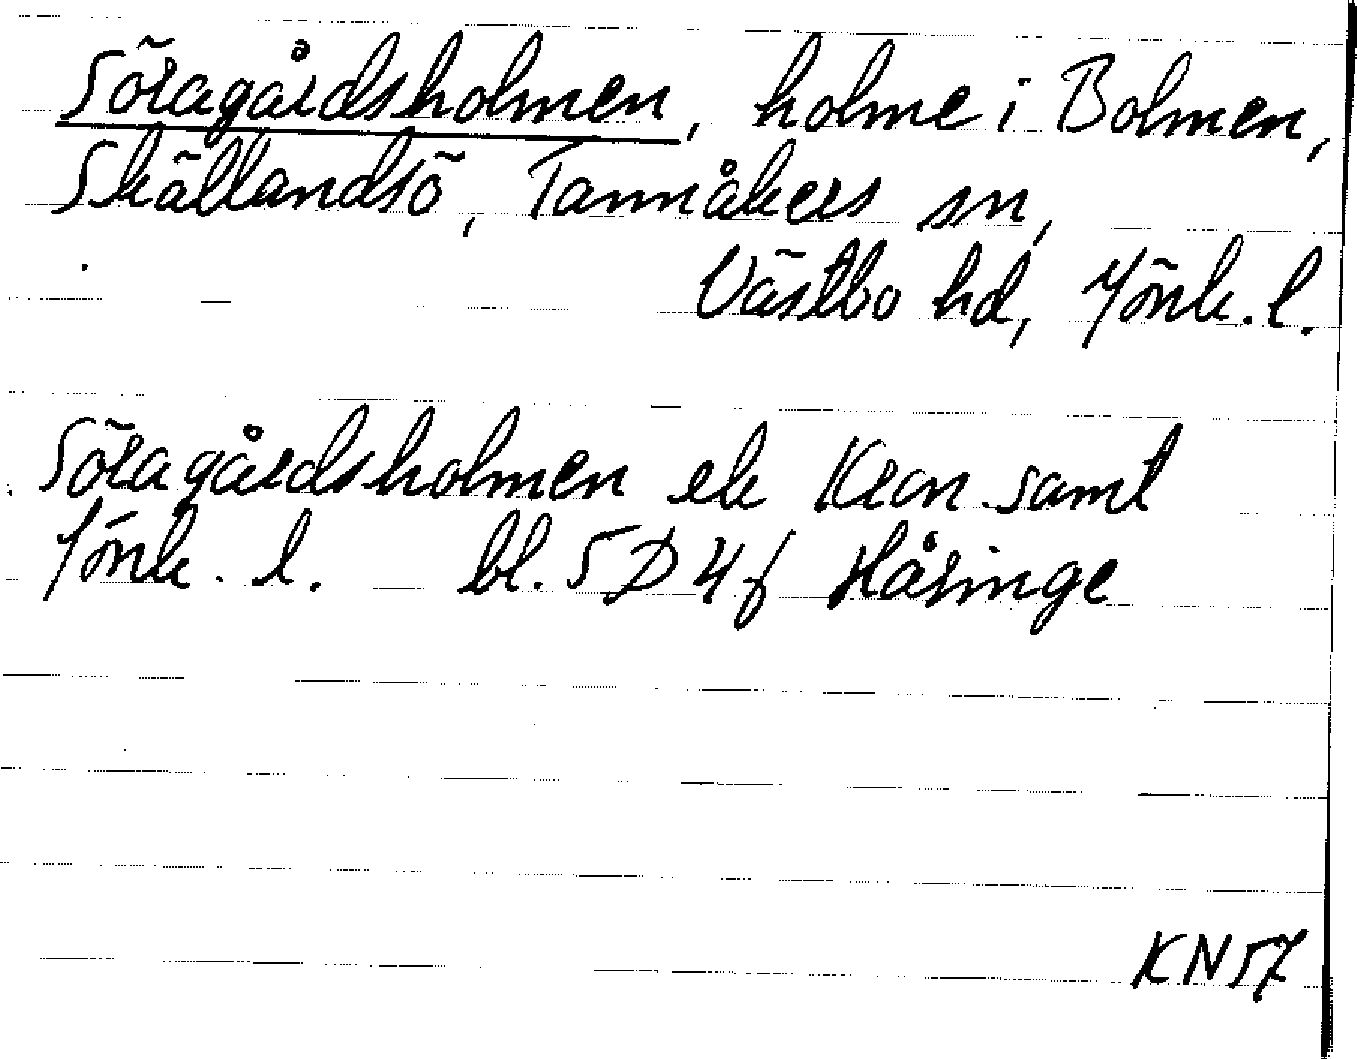 Söragårdsholmen, holme i Bolmen,
Skällandsö, Tannåkers sn,
Västbo hd, Jönk. l.
Söragårdsholmen ek Kron samt
Jönk. l. bl. 5D4f Håringe
KN57